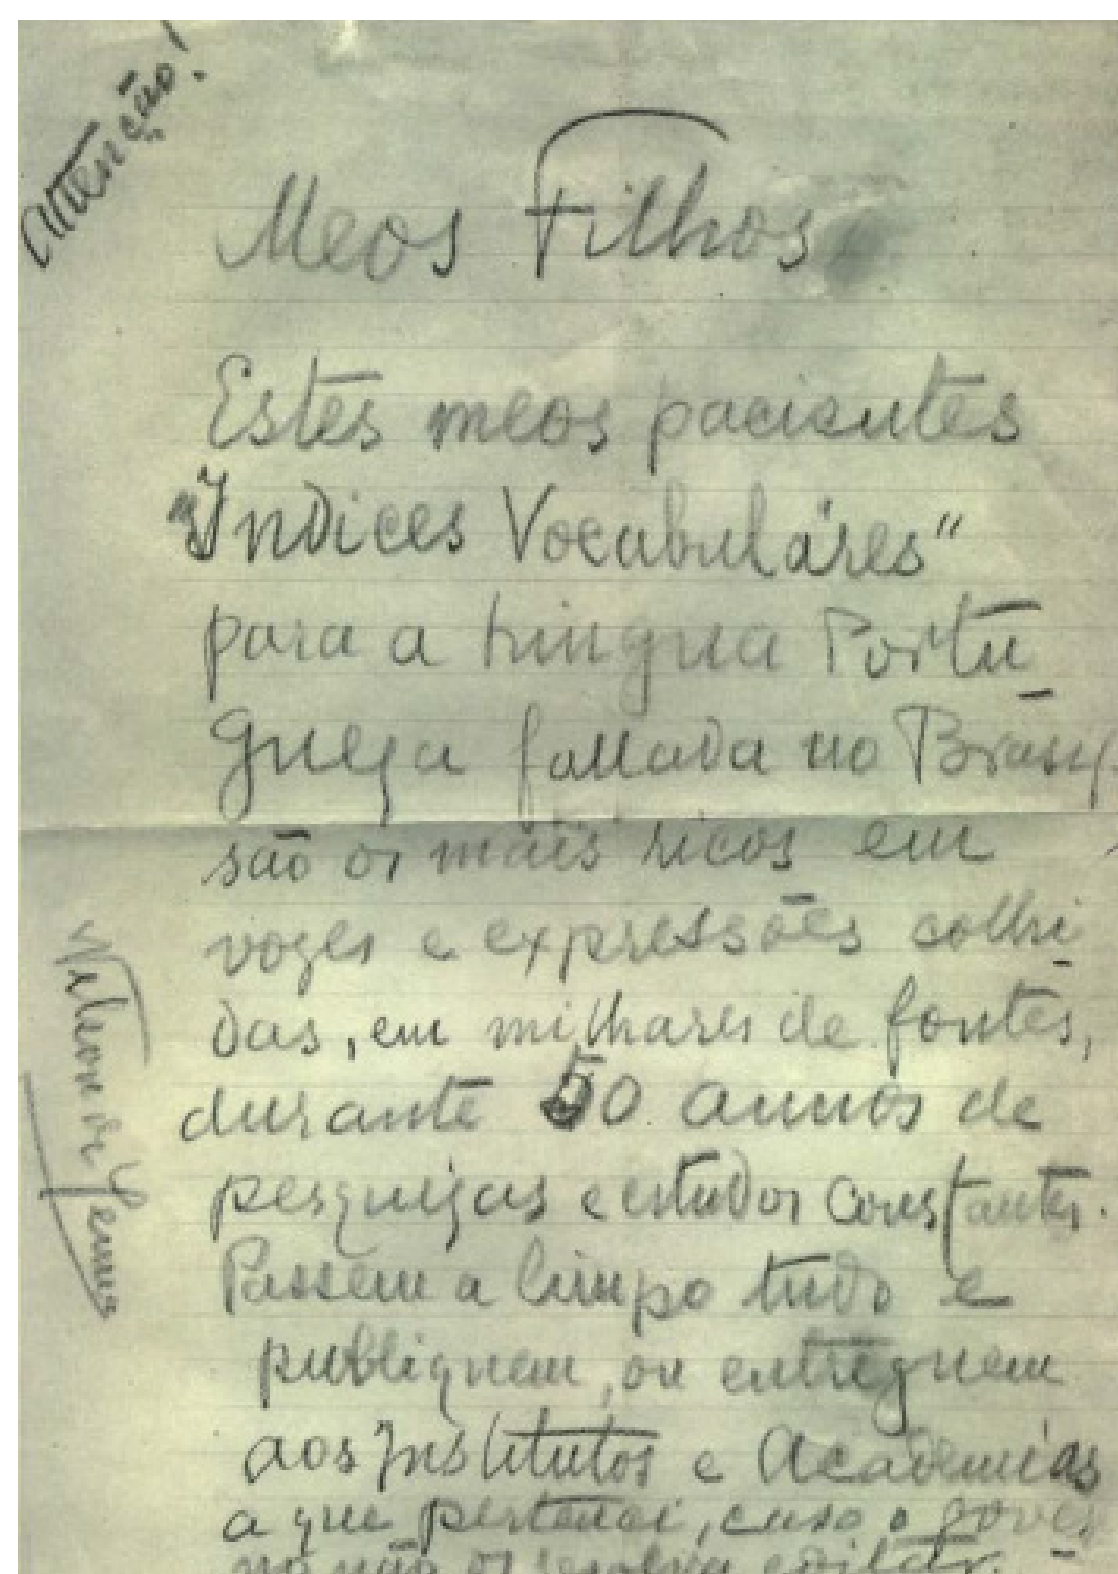 Attenção!
Meos Filhos
Estes meos pacientes
"Indices Vocabuláres"
para a Lingua Portu
gueza fallada no Brasil
são os mais ricos em
vozes e expressões colhi-
das, em milhares de fontes,
durante 50 annos de
pesquizas e estudos constantes.
Passem a limpo tudo e
publiquem, ou entreguem
aos Institutos e Academias
a que pertenci, caso o gover-
no não os resolva editar.
Nelson de Senna